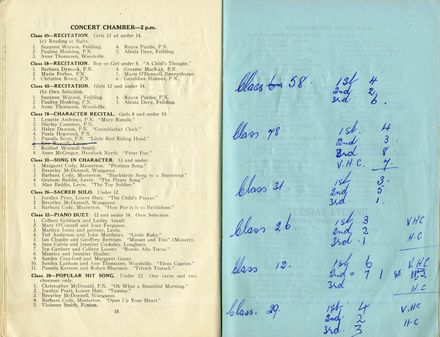 CONCERT CHAMBER—2 p.m.
Class 65—RECITATION. Girls 12 and under 14.
(c) Reading at Sight.
1. Suzanne Watson, Feilding.
2. Pauline Hosking, P.N.
3. Anne Thomassen, Woodville.
4. Royce Purdie, P.N.
5. Alexis Davy, Feilding.
Class 58—RECITATION. Boy or Girl under 8. "A Child's Thought."
1. Barbara Dymock, P.N.
2. Maria Forbes, P.N.
3. Christine Rowe, P.N.
4. Graeme MacKay, P.N.
Class 65—RECITATION. Girls 12 and under 14.
(b) Own Selection.
1. Suzanne Watson, Feilding.
2. Pauline Hosking, P.N.
3. Anne Thomassen, Woodville.
4. Royce Purdie, P.N.
5. Alexis Davy, Feilding.
Class 78—CHARACTER RECITAL. Girls 8 and under 10.
1. Lynette Andrews, P.N. "Mary Rundle."
2. Shirley Cameron, P.N.
3. Helen Dawson, P.N. "Grandfather Clock."
4. Paula Hopwood, P.N.
5. Pamela Scott, P.N. "Little Red Riding Hood."
8. Anne McGregor, Havelock North. "Peter Pan."
Class 31—SONG IN CHARACTER. 13 and under.
1. Margaret Cody, Masterton. "Florians Song."
2. Beverley McDonnell, Wanganui.
3. Barbara Cody, Masterton. "Blackbirds Song to a Buttercup."
4. Graham Reddie, Levin. "The Pirate Song"
5. Alan Reddie, Levin. "The Toy Soldier"
Class 26—SACRED SOLO. Under 12.
1. Jocelyn Pratt, Lower Hutt. "The Child's Prayer."
2. Beverley McDonnell, Wanganui.
3. Barbara Cody, Masterton. "How Far is it to Bethlehem"
Class 12—PIANO DUET. 12 and under 14. Own Selection.
1. Colleen Goldsack and Lesley Airzell
2. Mary O'Connell and Joan Ferguson.
3. Marilyn Jones and partner, Levin.
4. Ted Anderson and John Matthews. "Little Ruby."
5. Ian Chaplin and Geoffrey Bertram "Mozart and Trio" (Mozart).
6. Jean Currie and Jennifer Cooksley, Longburn.
7. Joy Gardner and Colleen Looser. "Rondo Alla Turca."
8. Maurice and Jennifer Slader.
9. Sandra Crawford and Margaret Grant
10. Sandra Lanham and Ann Thomassen, Woodville. "Elens Caprice."
11. Pamela Kernon and Robyn Sharman. "Tritsch Tratsch."
Class 29—POPULAR HIT SONG. Under 12. One verse and two
choruses only.
1. Christopher McDonald, P.N. "Oh What a Beautiful Morning."
2. Jocelyn Pratt, Lower Hutt. "Tammy."
3. Beverley McDonnell, Wanganui.
4. Barbara Cody, Masterton. "Open Up Your Heart."
5. Vivienne Smith, Foxton.
18
Class 58. 1st 4
2nd 2,
3rd 6.
Class 78 1st. 4
2nd. 3
3rd 8
V.H.C. 7
Class 31. 1st 3.
2nd 2.
3rd. 1.
Class 26 1st 3 V.H.C
2nd 2
3rd. 1 H.C
Class 12. 1st 6 V.H.C
2nd = 7 1
3rd
H.C
Class. 29 1st 4 V.H.C
2nd 2 H.C
3rd 3